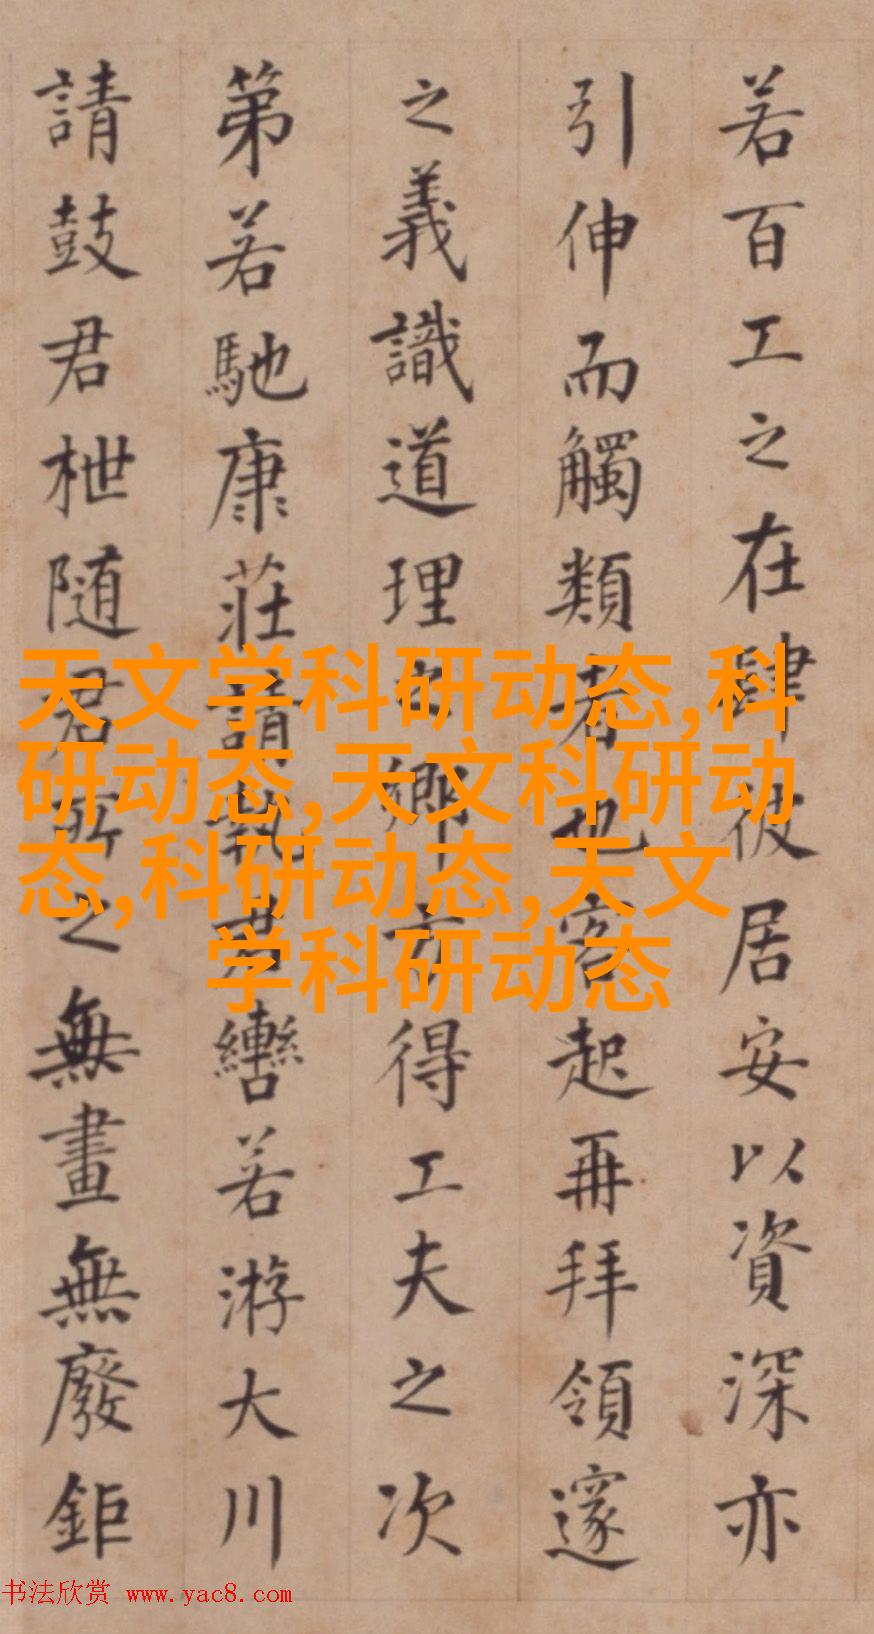 若百工之在肆彼居安以資深亦
引伸而觸類者也客起再拜領邃
之義識道理之鄉方得工夫之次
第若馳康莊請執君轡若游大川
請鼓君枻随君所之無畫無廢鉅
天文学科研动态,科
研动态,天文科研动
态,科研动态,天文
学科研动态
书法欣赏 www.yac8.com